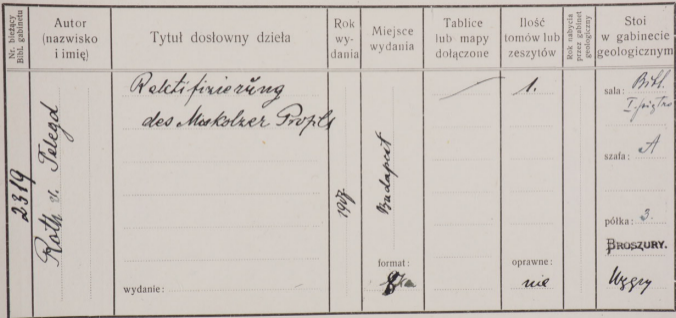 Nr. bieżący
Bibl. gabinetu
Autor
(nazwisko
i imię)
Tytuł dosłowny dzieła
Rok
wy-
dania
Miejsce
wydania
Tablice
lub mapy
dołączone
Ilość
tomów lub
zeszytów
Rok nabycia
przez gabinet
geologiczny
Stoi
w gabinecie
geologicznym
2319
Roth v. Telegd
Rektifizierung
des Miskolzer Profils
wydanie:
1907
Budapest
format:
8ka
1.
oprawne:
nie
sala: Bibl.
I. piętro
szafa: A
półka: 3.
BROSZURY.
Węgry